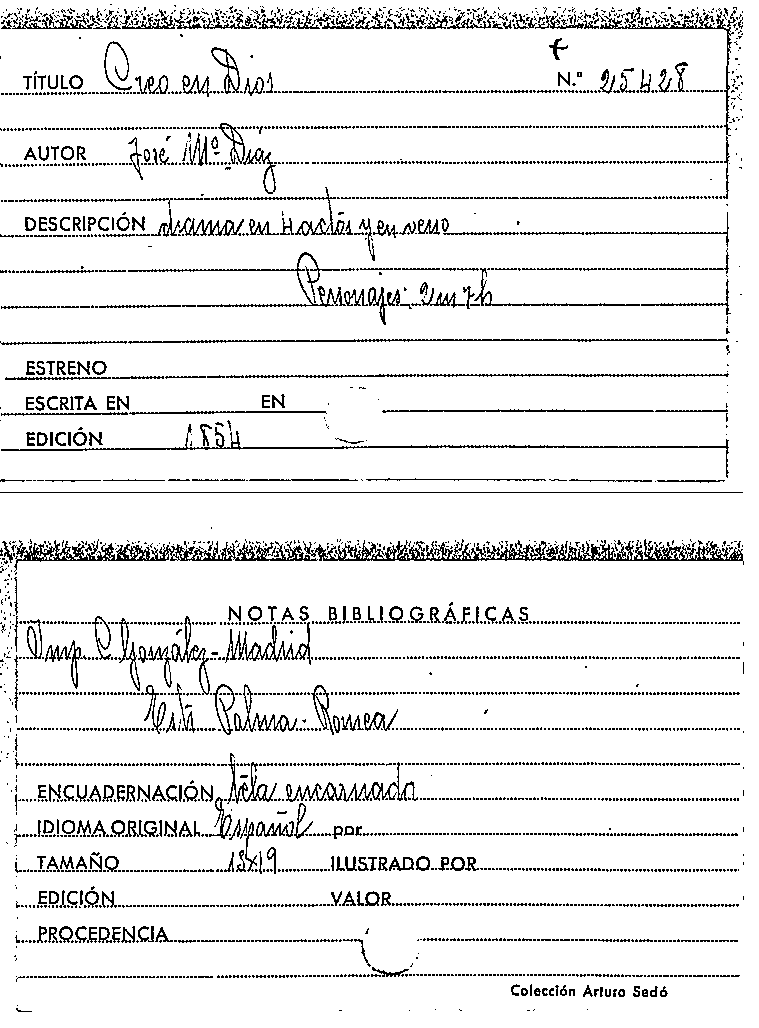 TÍTULO Creo en Dios N.º 25428
AUTOR José Mª Diáz
DESCRIPCIÓN drama en 4 actos y en verso
Personajes: 2m 7h
ESTRENO
ESCRITA EN EN
EDICIÓN 1854
NOTAS BIBLIOGRÁFICAS
Imp. C. González - Madrid
Palma - Romea
ENCUADERNACIÓN tela encarnada
IDIOMA ORIGINAL Español por
TAMAÑO 13x19 ILUSTRADO POR
EDICIÓN VALOR
PROCEDENCIA
Colección Arturo Sedó